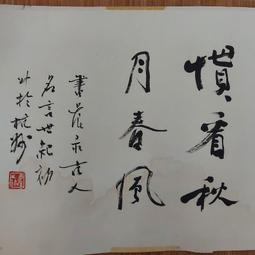 慣看秋
月春風
書古人
名言世紀初
於杭州